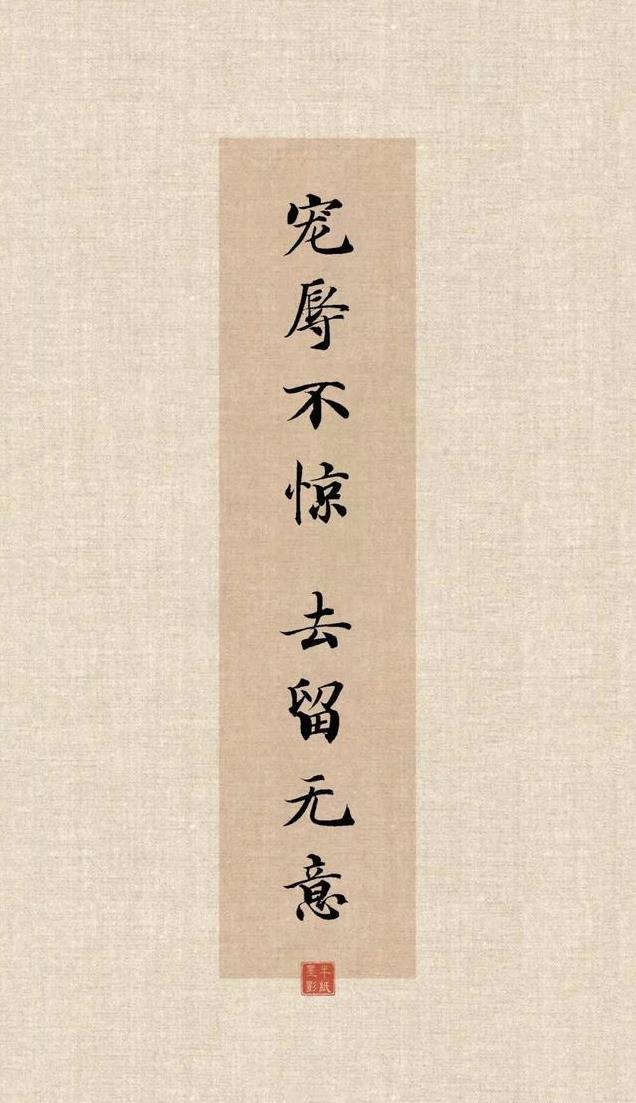 宠辱不惊 去留无意
半纸
墨影